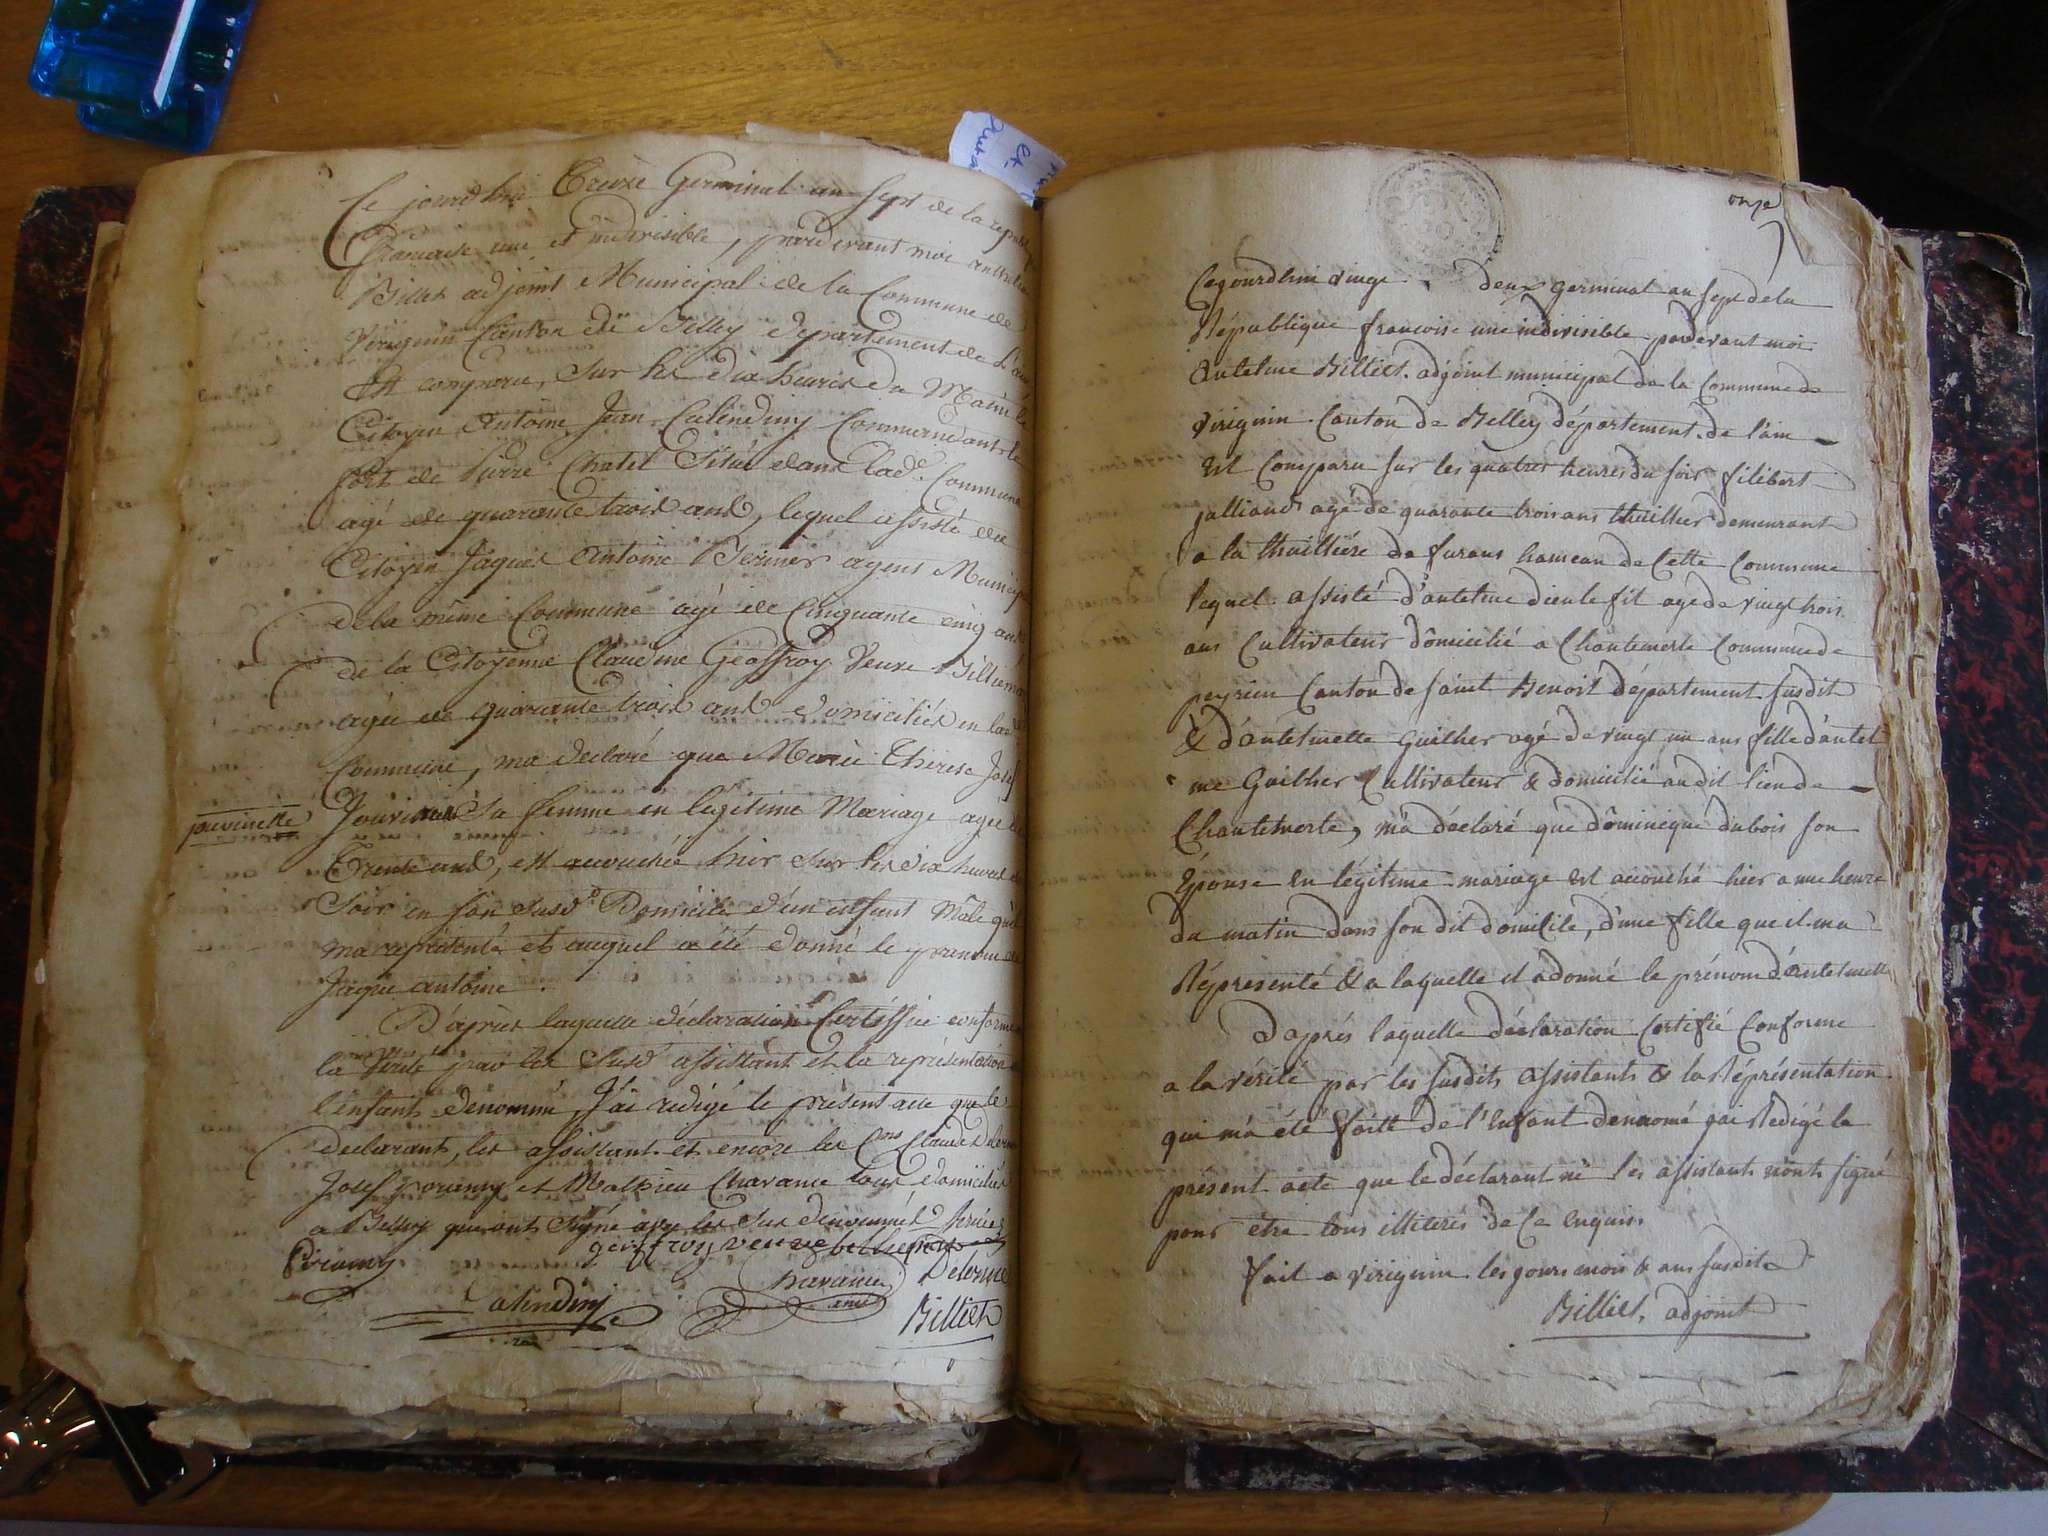 Ce jourd'hui Treize Germinal an sept de la republ
francaise une et indivisible, pardevant moi anthelme
Billiet adjoint Municipal de la Commune de
Virignin Canton de Belley departement de L'ain
Est comparu, sur les dix heures du Matin le
Citoyen Antoine Jean Calendiny Commandant le
fort de Pierre Chatel Situé dans lade. Commune
agé de quarante trois ans, lequel assisté du
Citoyen Jaques Antoine agent Municip
de la même Commune agé de Cinquante cinq ans
de la Citoyenne Claudine Geoffroy Veuve
agée de quarante trois ans domiciliés en lad
Commune, ma declaré que Marie Therese Josep
jouvinette
sa femme en legitime Mariage agée de
Trente ans, est accouchée hier sur les dix heures du
Soir en son susd. Domicile d'un enfant Mâle qu'il
ma representé et auquel a été donné le prenom de
Jaque antoine.
D'aprés laquelle déclaration Certiffiée conforme
la Verité par les Susd. assistant et la représentation
l'enfant dénommé, J'ai redigé le présent acte que le
declarant, les assistant et encore les Cens Claude
Josef et Mathieu Charance tous domiciliés
a Belley qui ont signé avec les sus dénommés
geoffroy veuve
Charance Delerme
Calendini
Billiet
onze
Cejourdhui vingt deux germinal an sept de la
République francoise une indivisible pardevant moi
Antelme Billiet. adjoint municipal de la Commune de
virignin Canton de Belley département de l'ain
Est Comparu sur les quatres heures du soir filibert
jalliand agé de quarante trois ans thuillier demeurant
a la thuilliére de furans hameau de Cette Commune
lequel assisté d'antelme dieulefit agé de vingt trois
ans Cultivateur dômicilié a Chantemerle Commune de
peyrieu Canton de saint Benoit département susdit
& d'antelmette Guilher agé de vingt un ans fille d'antel
me Guilher Cultivateur & domicilié audit lieu de
Chantemerle, m'a déclaré que dôminique dubois son
Épouse en légitime mariage est accouché hier a une heure
du matin dans son dit domicile, d'une fille que il ma
Réprésenté & a laquelle il a donné le prénom d'Antelmette
d'aprés laquelle déclaration Certifié Conforme
a la vérité par les susdits assistants & la Réprésentation
qui m'a été faitte de l'Enfant denaomé jai Redigé le
présent acte que le déclarant ni les assistants n'onts signé
pour être tous illiterés de Ce Enquis
fait a virignin les jours mois & ans susdits
Billiet, adjoint